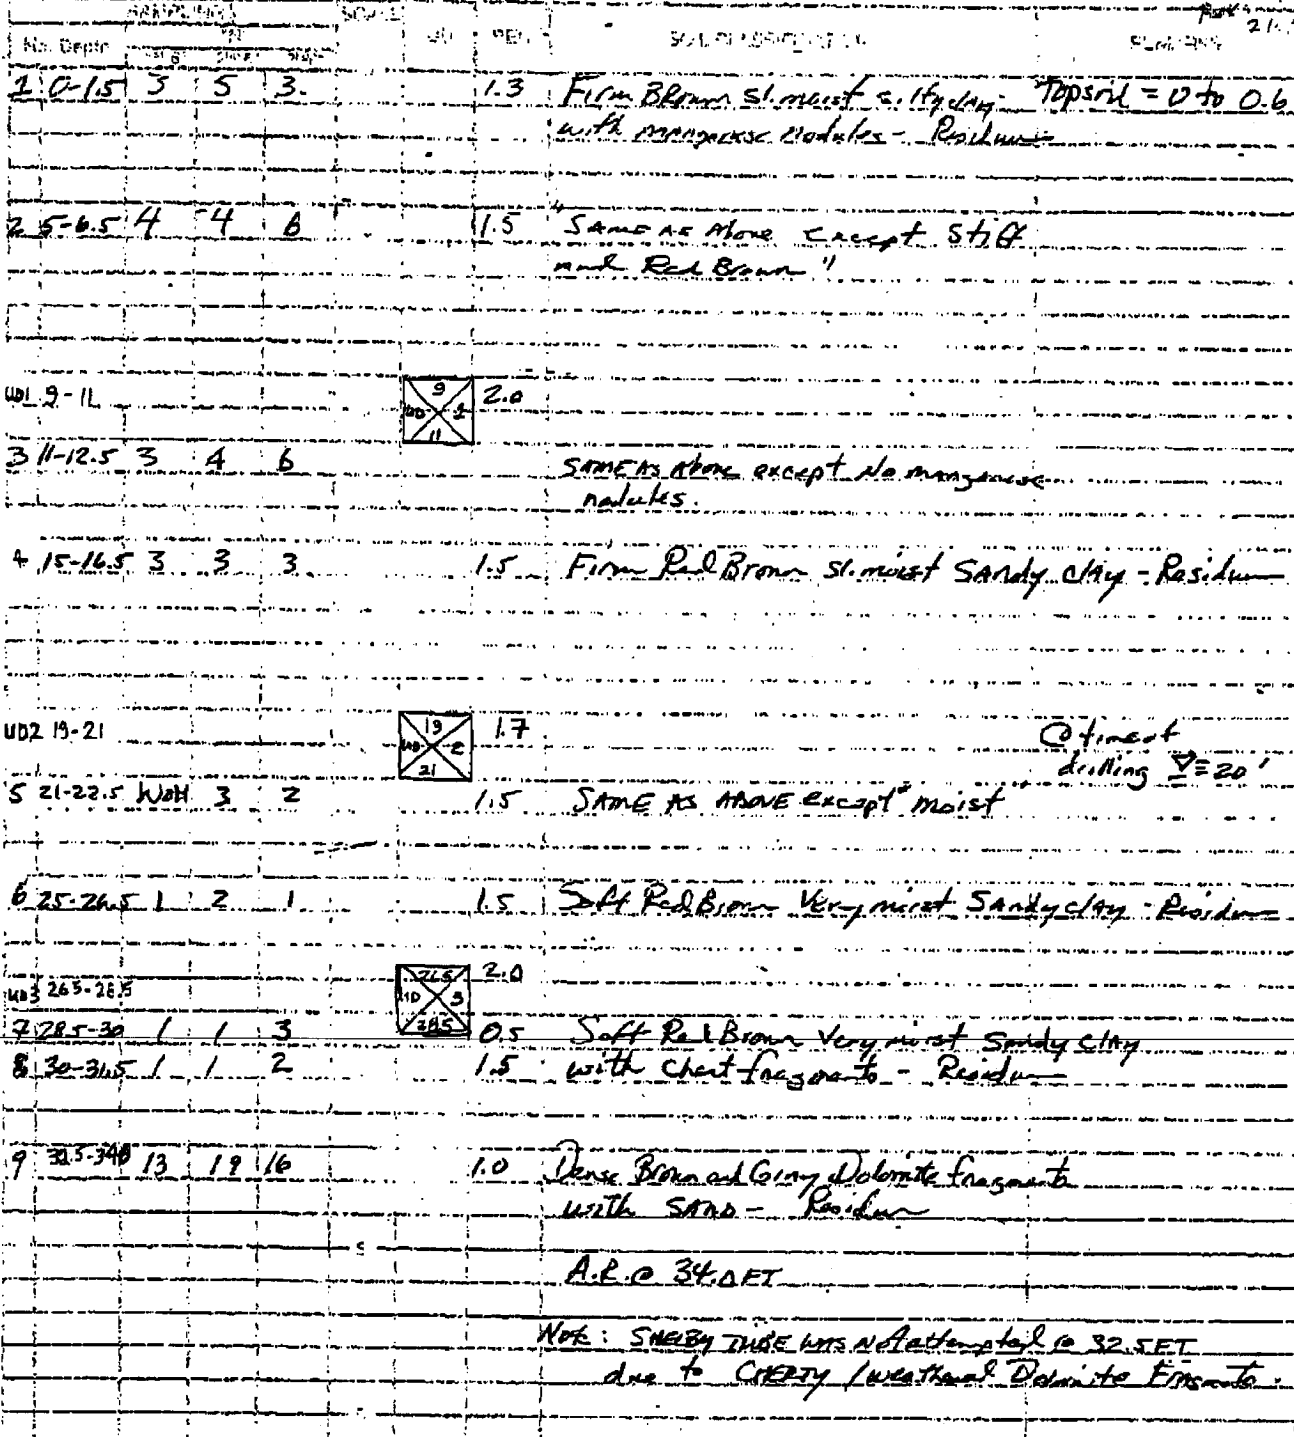 No. Depth REC. SOIL CLASSIFICATION REMARKS 21.
1 0-1.5 3 5 3. 1.3 Firm Brown sl. moist silty clay Topsoil = 0 to 0.6
with manganese nodules - Residuum
2 5-6.5 4 4 6 1.5 "SAME AS Above except Stiff
and Red Brown"
UD1 9-11 9 UD 1 11 2.0
3 11-12.5 3 4 6 SAME AS Above except No manganese
nodules.
4 15-16.5 3 3 3 1.5 Firm Red Brown sl. moist SANdy clAy - Residuum
UD2 19-21 19 UD 2 21 1.7 @ time of
drilling ▽ = 20'
5 21-22.5 WOH 3 2 1.5 SAME AS ABOVE except "moist
6 25-26.5 1 2 1 1.5 Soft Red Brown Very moist SANdy clAy - Residuum
UD3 26.5-28.5 26.5 UD 3 28.5 2.0
7 28.5-30 1 1 3 0.5 Soft Red Brown Very moist Sandy ClAy
8 30-31.5 1 1 2 1.5 with Chert fragments - Residuum
9 32.5-34.0 13 19 16 1.0 Dense Brown and Gray Dolomite fragments
with SAND - Residuum
A.R. @ 34.0 FT
Note: SHELBY TUBE WAS Not attempted @ 32.5 FT
due to CHERTY / weathered Dolomite Fragments.